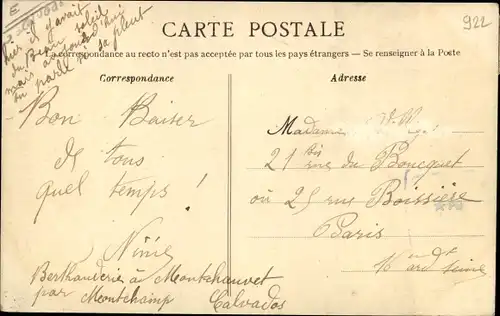 E
922
CARTE POSTALE
La correspondance au recto n'est pas acceptée par tous les pays étrangers — Se renseigner à la Poste
hier il y avait
du Beau soleil
mais aujourd'hui
on parle si sa pleut
Correspondance
Bon Baiser
De tous
quel temps !
Ninie
à Montchauvet
par Montchamp Calvados
Adresse
Madame
21 bis rue du Boucquet
où 25 rue Boissière
Paris
16 ard Seine